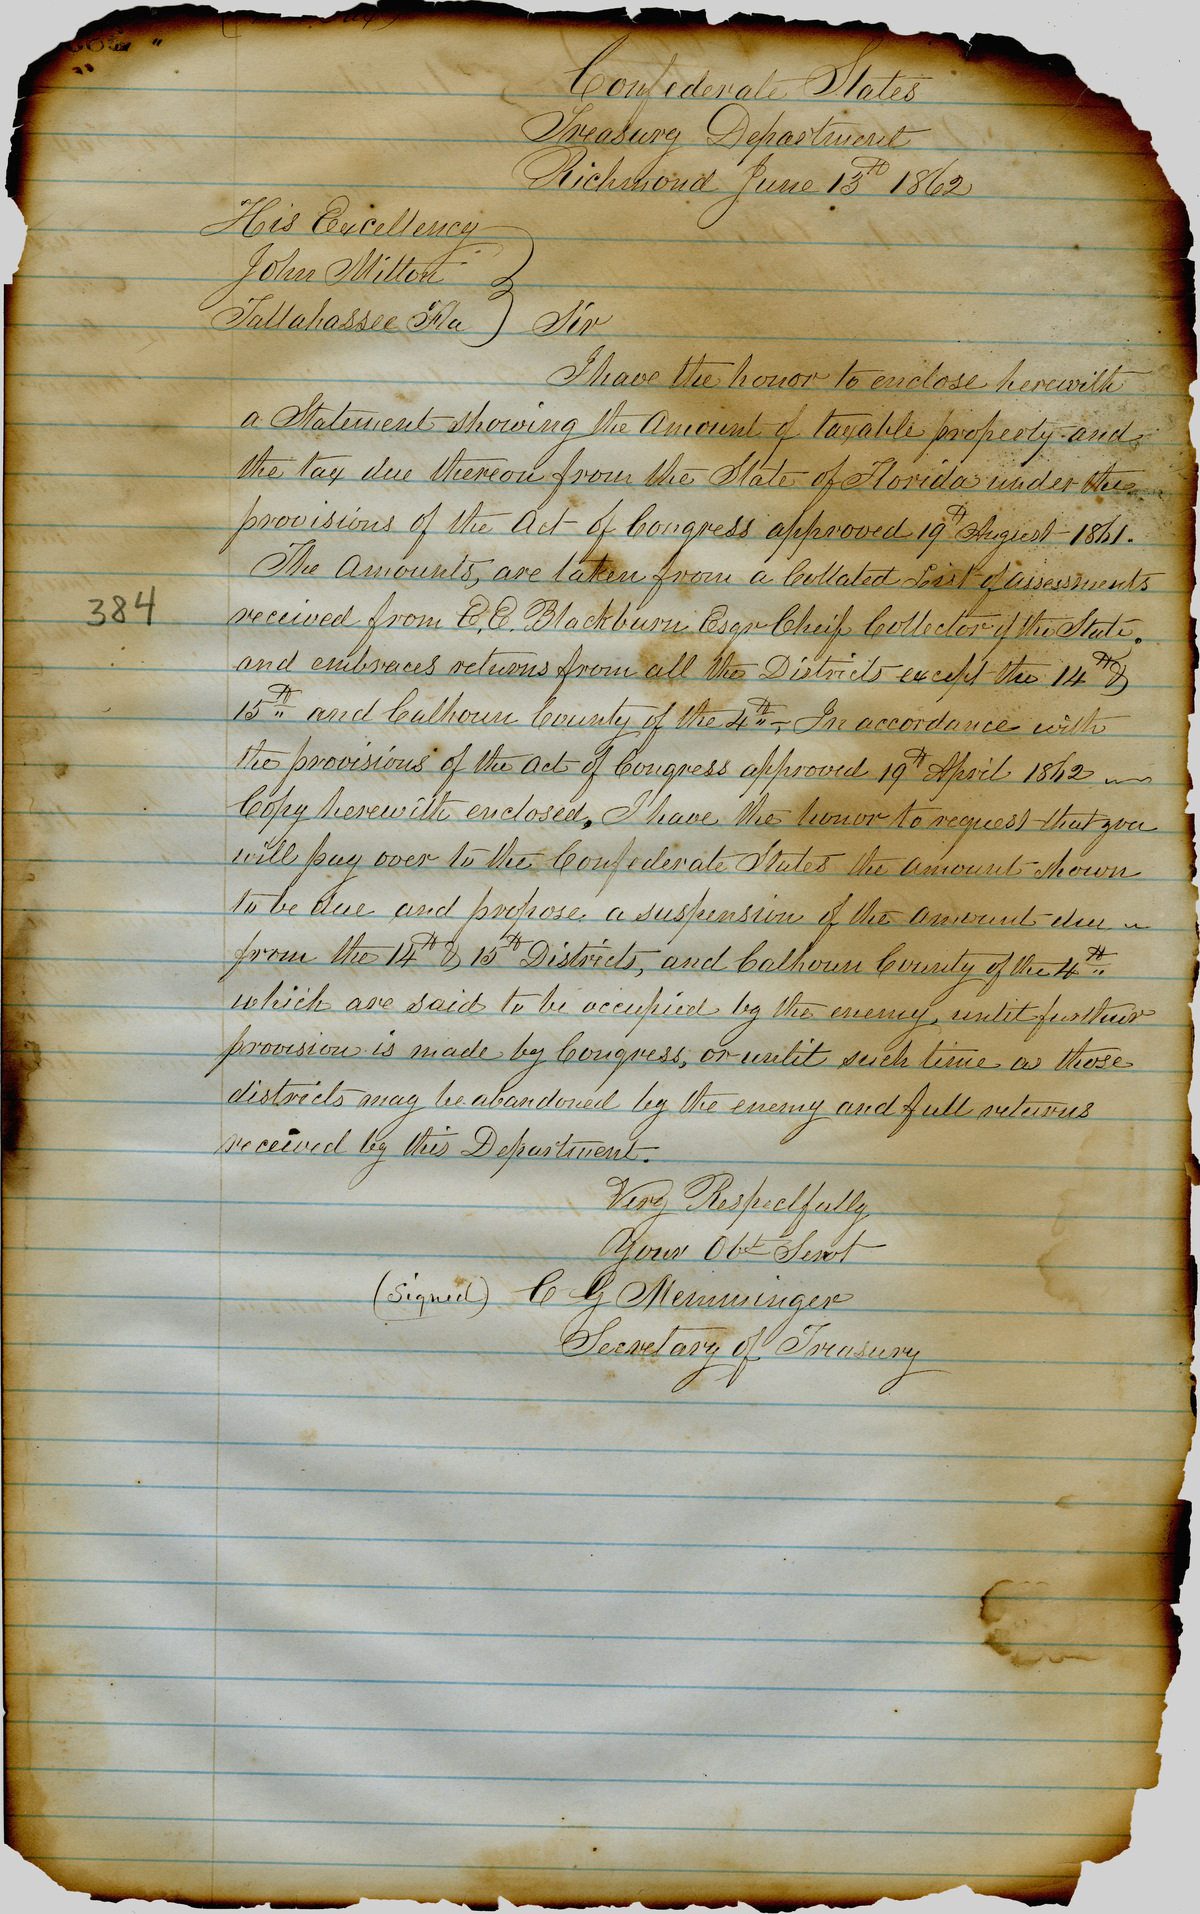 Confederate States
Treasury Department
Richmond June 13th 1862
His Excellency
John Milton
Tallahassee Fla } Sir
I have the honor to enclose herewith
a Statement showing the Amount of taxable property and
the tax due thereon from the State of Florida under the
provisions of the Act of Congress approved 19th August 1861.
The Amounts, are taken from a Collated List of assessments
384
received from E. E. Blackburn Esqr Cheif Collector of the State,
and embraces returns from all the Districts except the 14th &
15th and Calhoun County of the 4th, In accordance with
the provisions of the Act of Congress approved 19th April 1862
Copy herewith enclosed, I have the honor to request that you
will pay over to the Confederate States the amount shown
to be due and propose a suspension of the amount due
from the 14th & 15th Districts, and Calhoun County of the 4th
which are said to be occupied by the enemy, until further
provision is made by Congress, or until such time as those
districts may be abandoned by the enemy and full returns
received by this Department.
Very Respectfully
Your Obt Servt
(Signed) C G Memminger
Secretary of Treasury